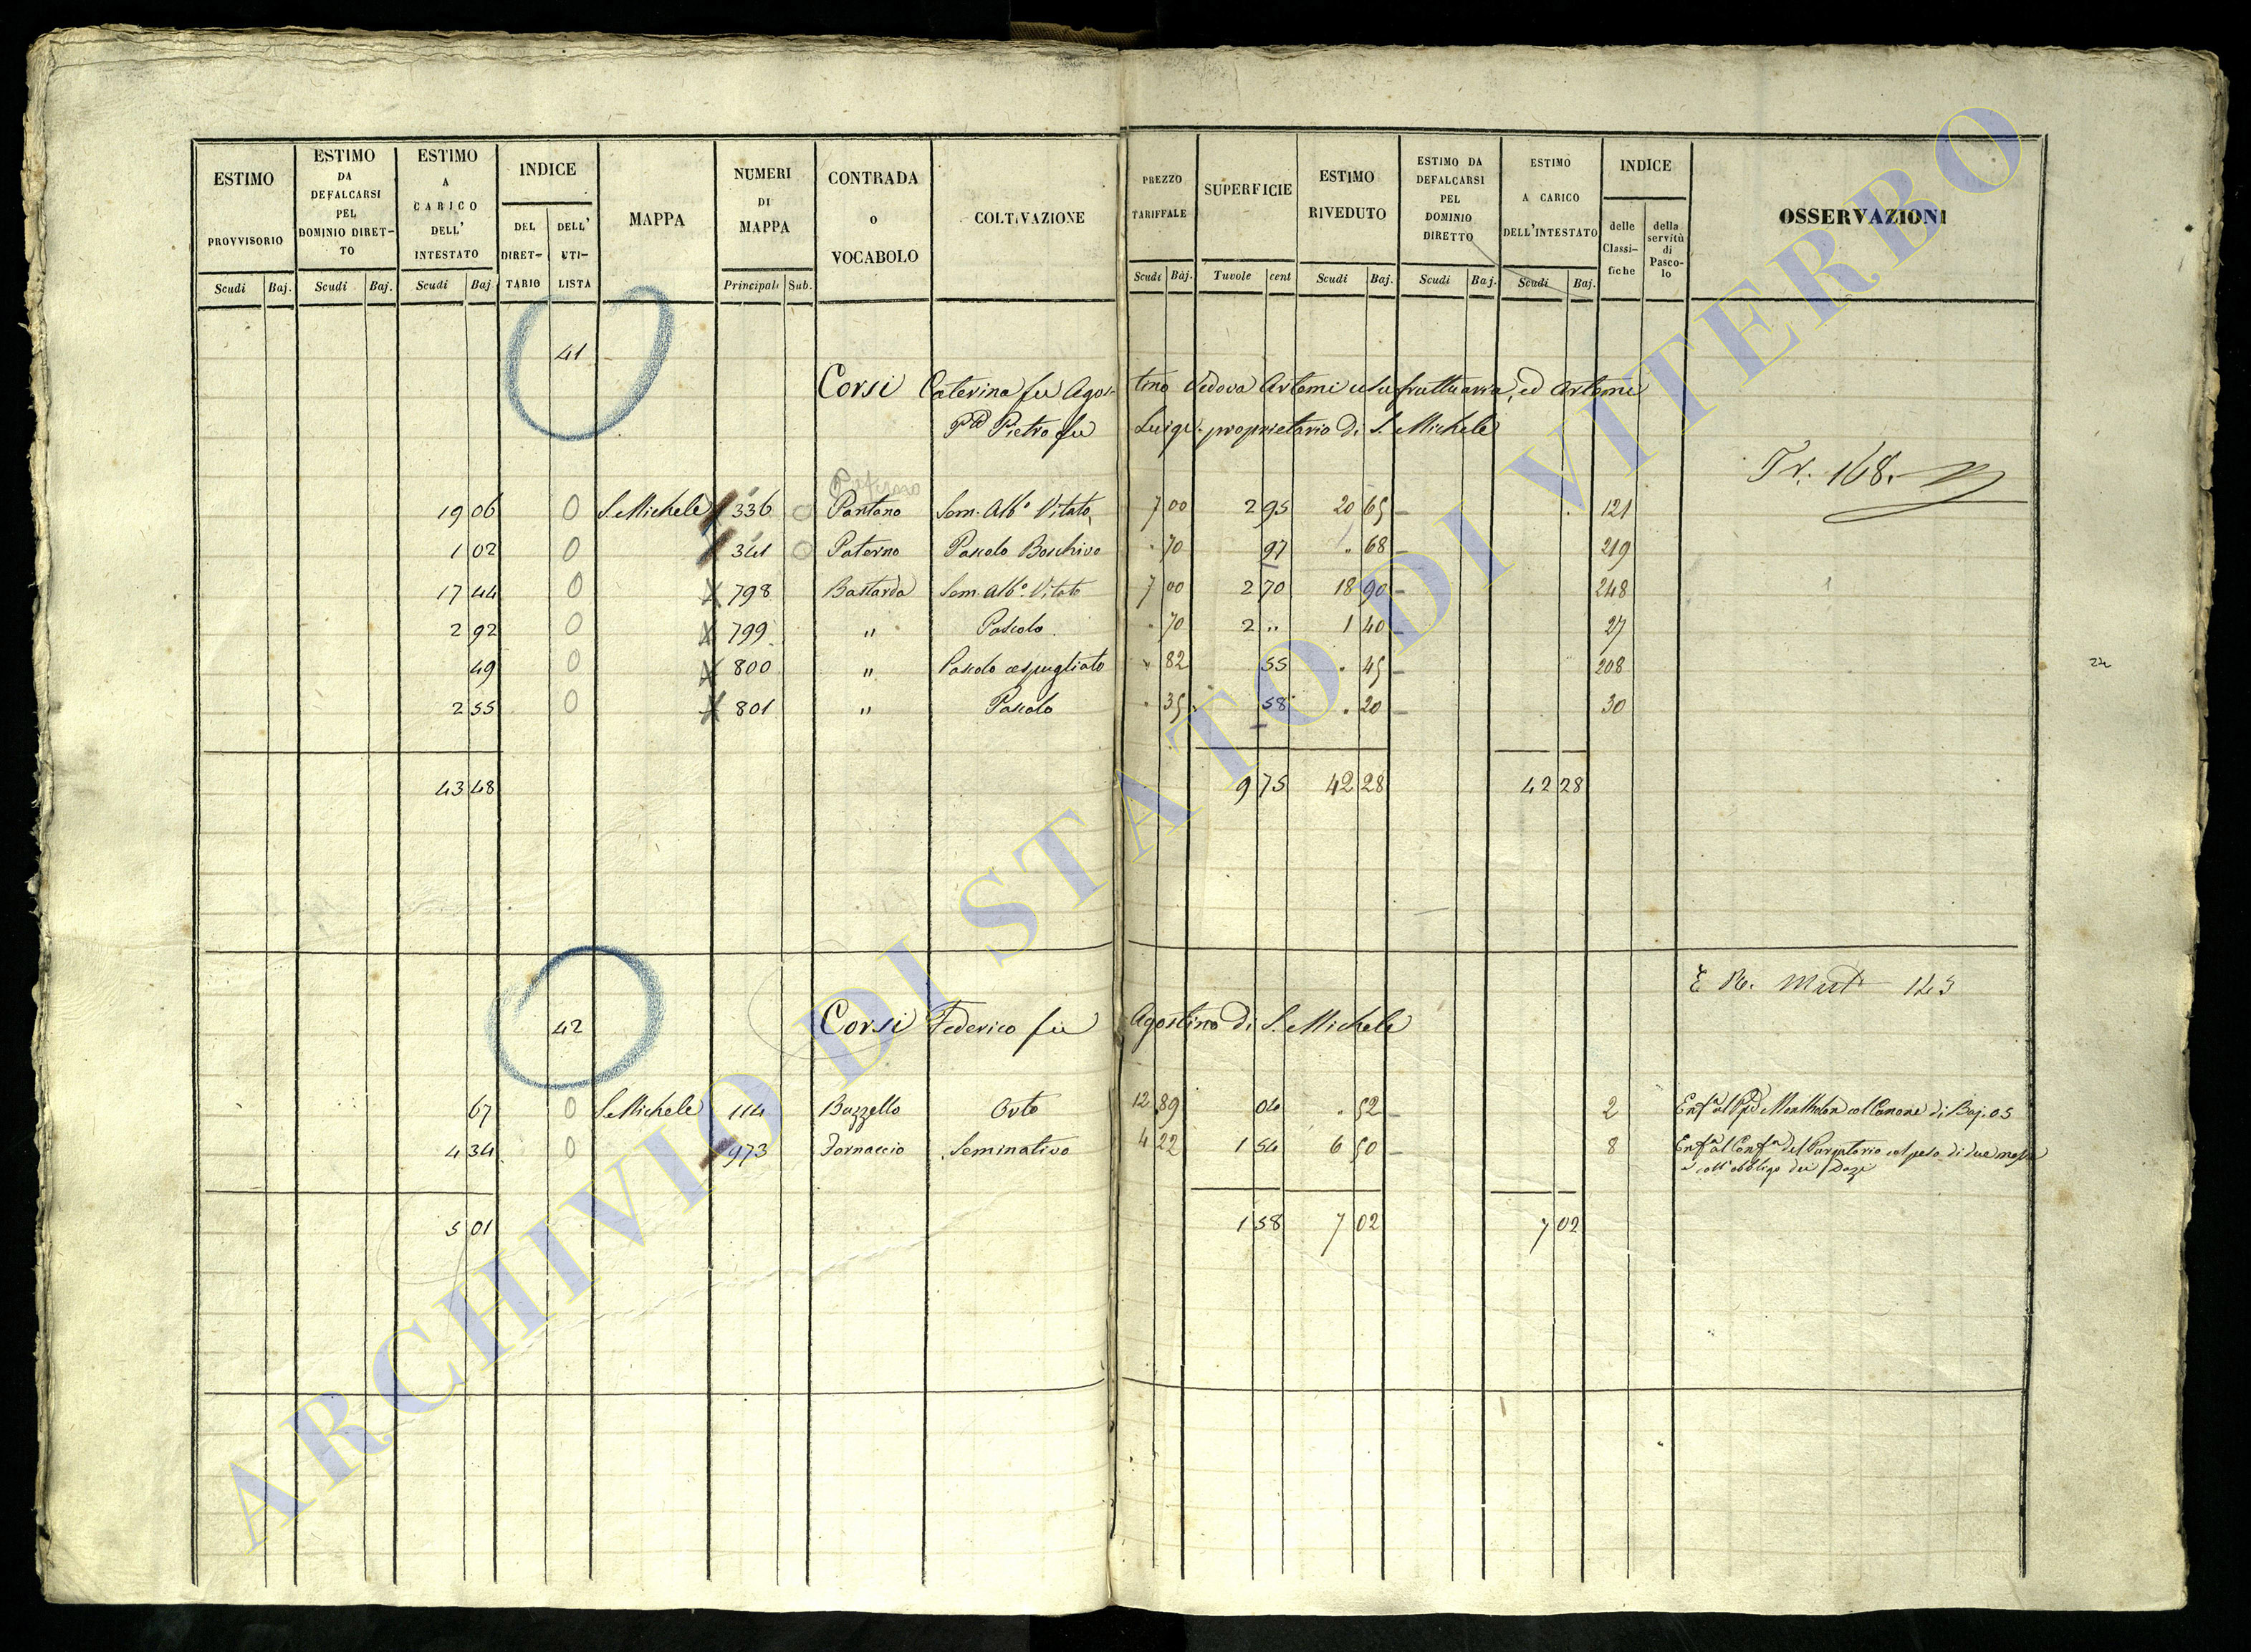 ESTIMO PROVVISORIO
ESTIMO DA DEFALCARSI PEL DOMINIO DIRET-TO
ESTIMO A CARICO DELL' INTESTATO
INDICE
DEL DIRET-TARIO
DELL' UTI-LISTA
MAPPA
NUMERI DI MAPPA
CONTRADA o VOCABOLO
COLTIVAZIONE
PREZZO TARIFFALE
SUPERFICIE
ESTIMO RIVEDUTO
ESTIMO DA DEFALCARSI PEL DOMINIO DIRETTO
ESTIMO A CARICO DELL'INTESTATO
INDICE
delle Classi-fiche
della servitù di Pasco-lo
OSSERVAZIONI
Scudi Baj. Scudi Baj. Scudi Baj Principali Sub. Scudi Baj. Tavole cent Scudi Baj. Scudi Baj. Scudi Baj.
41
Corsi Caterina fu Agos- tino Vedova Artemi usufruttuaria, ed Artemi
Pietro fu Luigi proprietario di S. Michele
Tr. 168.
Paterno
19 06 0 S. Michele 336 0 Pantano Sem. Alb.º Vitato 7 00 2 95 20 65 121
1 02 0 341 0 Paterno Pascolo Boschivo 70 97 68 219
17 44 0 798 Bastarda Sem. Alb.º Vitato 7 00 2 70 18 90 248
2 92 0 799 " Pascolo 70 2 " 1 40 27
49 0 800 " Pascolo cespugliato 82 55 45 208
2 55 0 801 " Pascolo 35 58 20 30
22
43 48 9 75 42 28 42 28
E R. Mut 143
42
Corsi Federico fu Agostino di S. Michele
67 0 S. Michele 114 Bazzello Orto 12 89 04 52 2 Enf.ª al Montholon col Canone di Baj. 05
4 34 0 973 Fornaccio Seminativo 4 22 1 54 6 50 8 Enf.ª al Conf.ª del Purgatorio col peso di due messe
e coll'obbligo dei Dazi
5 01 1 58 7 02 7 02
ARCHIVIO DI STATO DI VITERBO